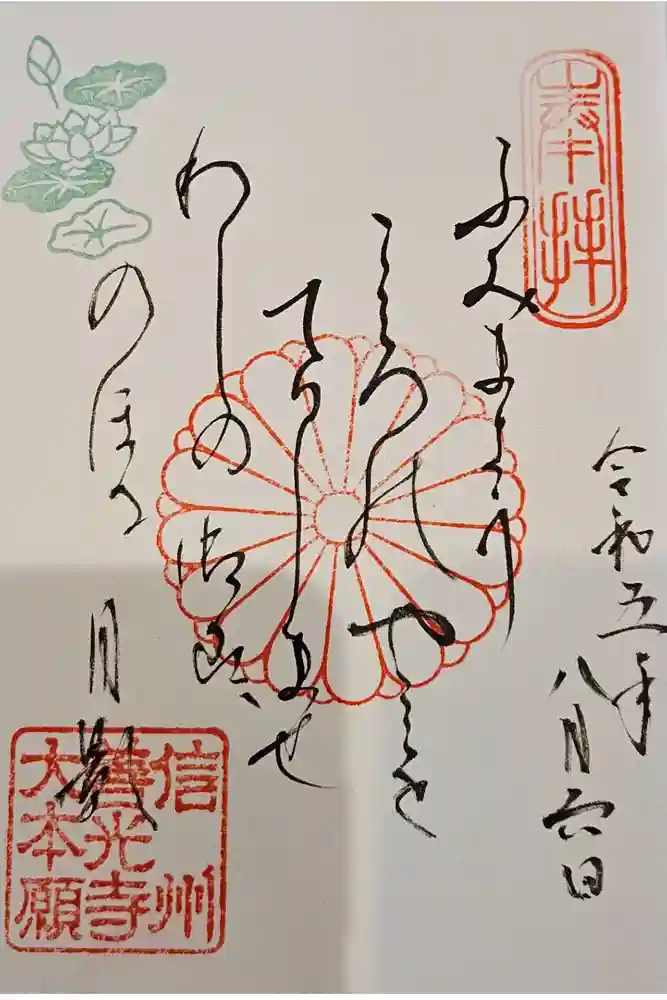 奉拝
令和五年
八月六日
ふみまよふ
こころのやみを
てらしませ
わしの御山に
のほる月影
信州
善光寺
大本願